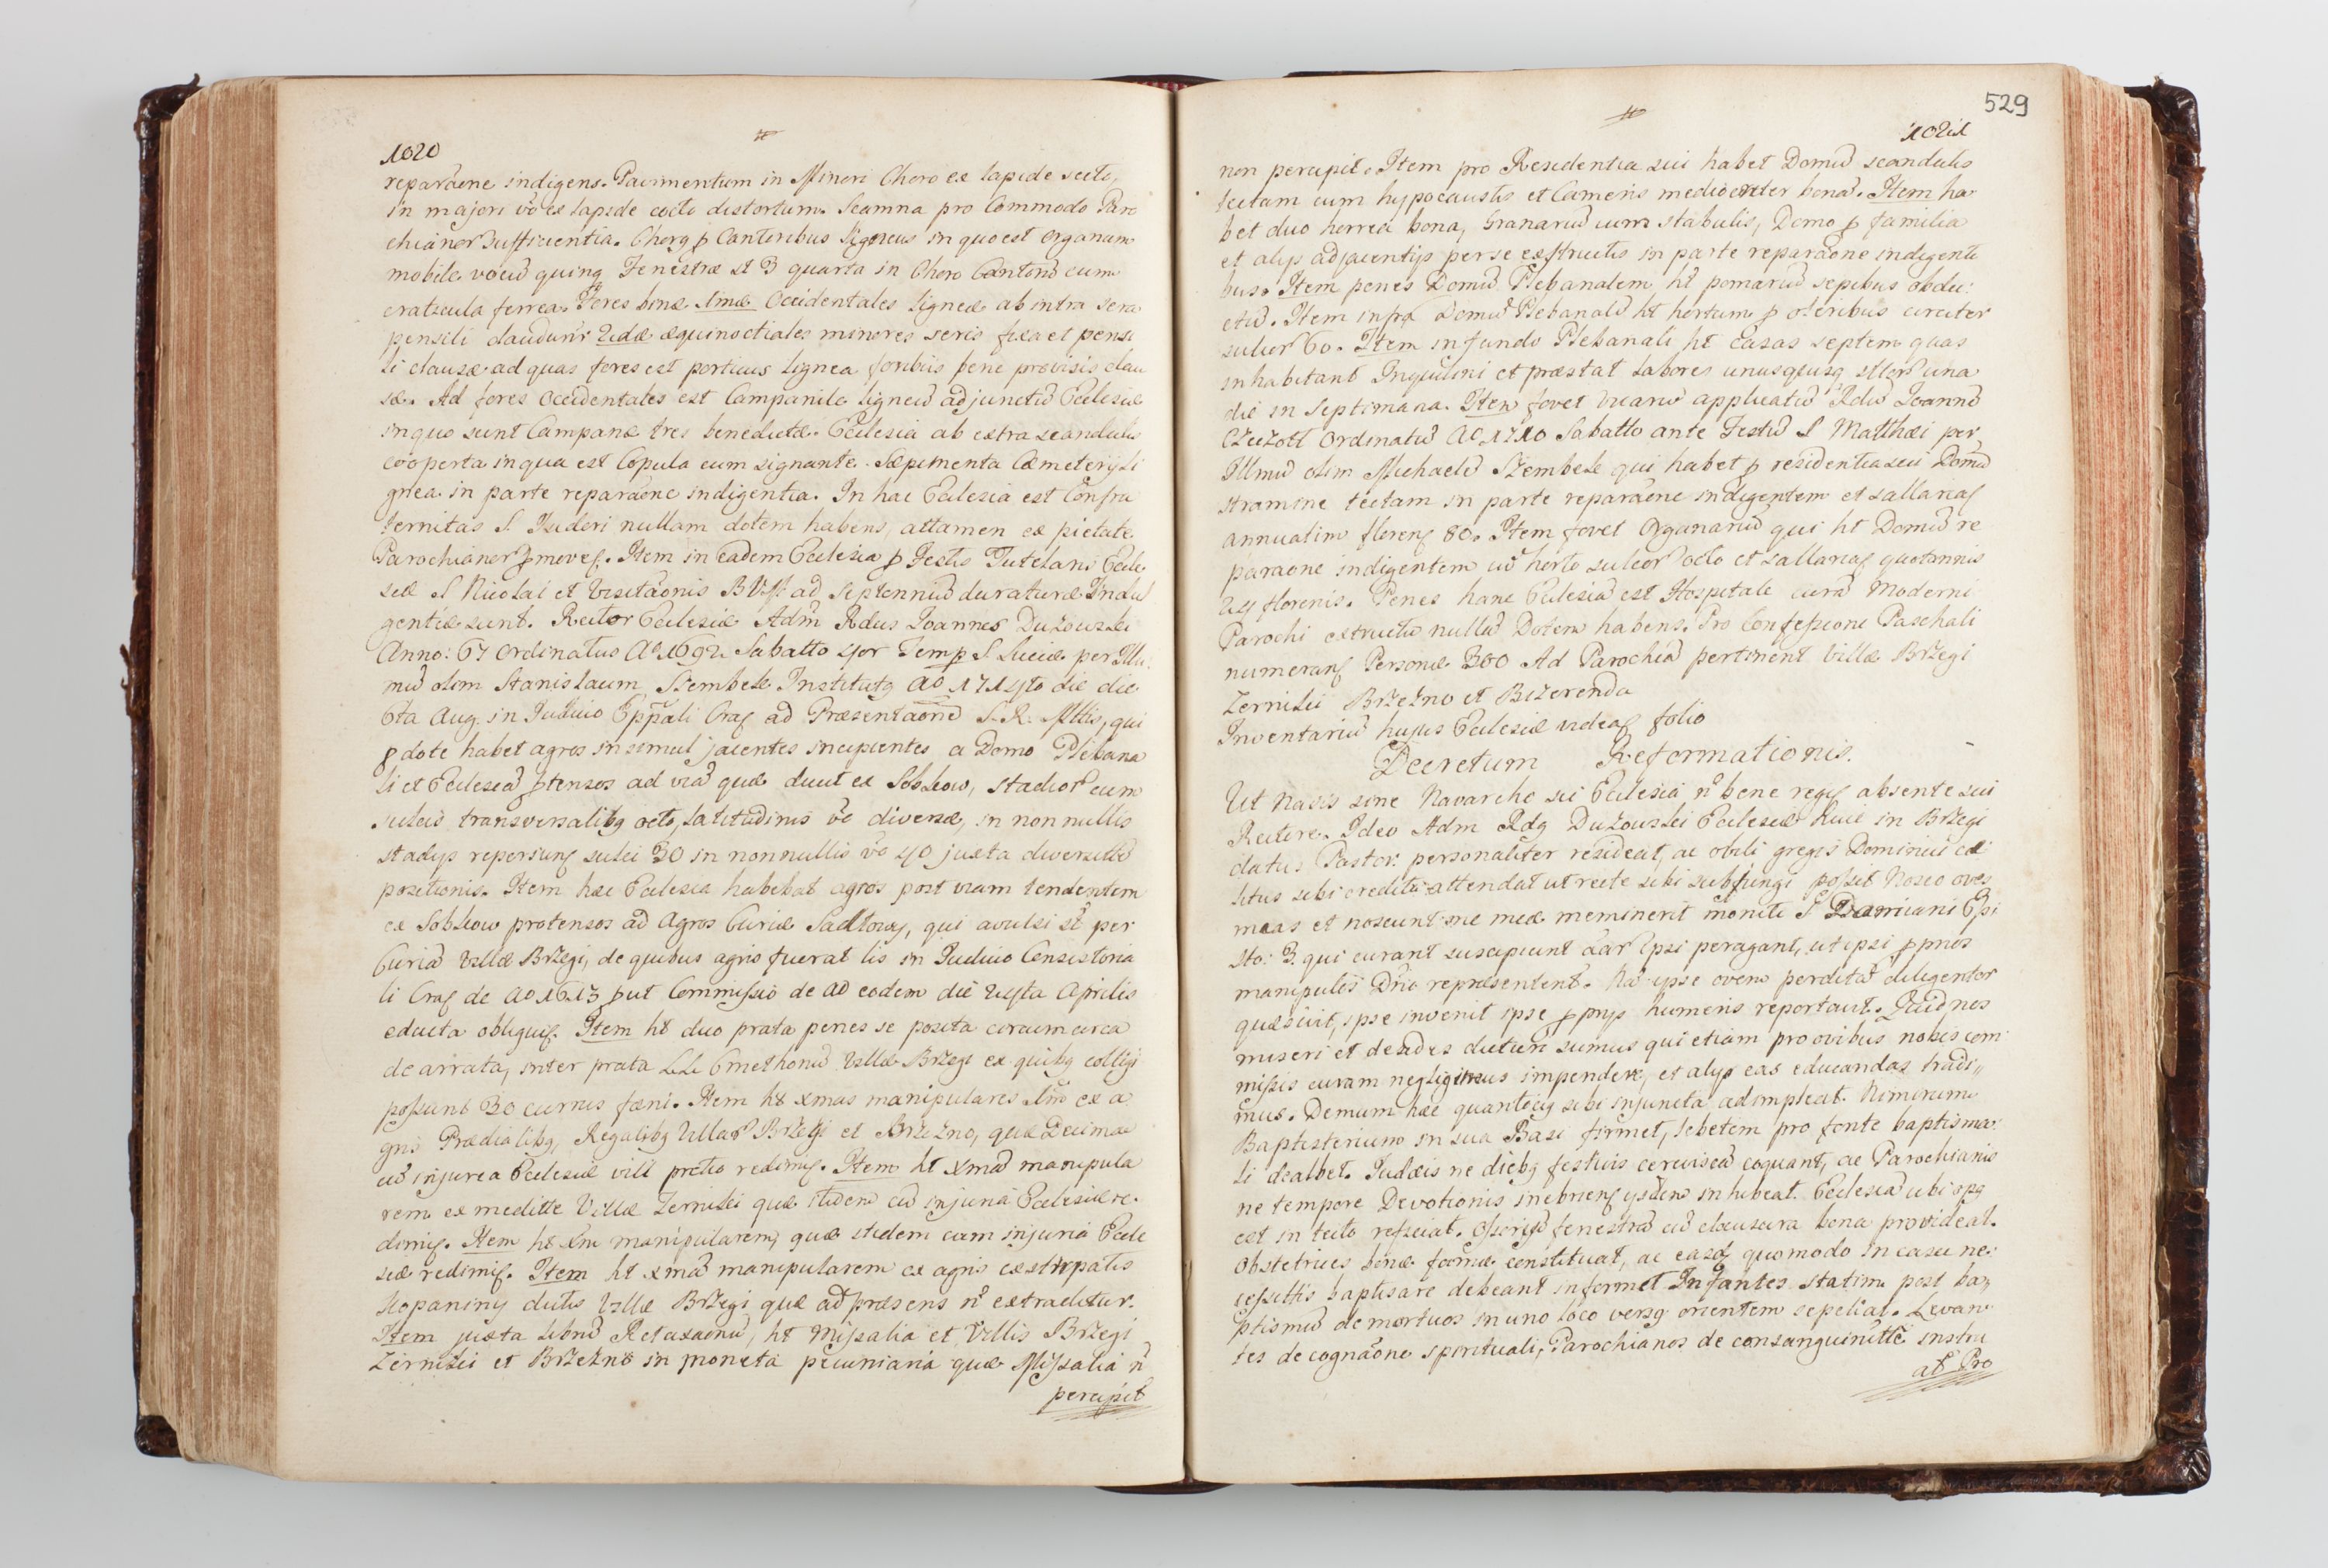 1020
reparaone indigens. Pavimentum in Minori Choro ex lapide secto,
in majori vo ex lapide cocto distortum. Scamna pro Commodo Paro
chianor sufficientia. Chorq p Cantoribus Ligneus in quo est Organum
mobile vocu quinq Fenestræ st 3 quarta in Choro Cantoru cum
craticula ferrea. Fores binæ 1mæ Occidentales Ligneæ ab intra sera
pensili claudunr 2dæ æquinoctiales minores seris fixa et pensi
li clausæ ad quas fores est porticus Lignea foribus bene provisis clau
sæ. Ad fores Occidentales est Campanile Ligneu adjunctu Ecclesiæ
in quo sunt Campanæ tres benedictæ. Ecclesia ab extra scandulis
cooperta in qua est Copula cum signante. Sæpimenta Cæmeterij Li
gnea in parte reparaone indigentia. In hac Ecclesia est Confra
ternitas S. Isidori nullam dotem habens, attamen ex pietate
Parochianor pmoves. Item in eadem Ecclesia p Festis Tutelaris Eccle
siæ S Nicolai et Visitaonis BVM ad Septenniu duraturæ Indul
gentiæ sunt. Rector Ecclesiæ Adm Rdus Joannes Duzowski
Anno: 67 Ordinatus Ao 1692 Sabatto 4or Temp S Luciæ per Illu:
mu olim Stanislaum Szembek Institutq Ao 1714to die die
6ta Aug. in Judicio Eppali Crac ad Præsentaone S. R. Mttis, qui
p dote habet agros in simul jacentes incipientes a Domo Plebana
li et Ecclesia ptensos ad via quæ ducit ex Sobkow, stadior cum
sulcis transversalibq octo, Latitudinis vo diversæ, in nonnullis
stadijs reperiunr sulci 30 in nonnullis vo 40 juxta diversitte
positionis. Item hæc Ecclesia habebat agros post viam tendentem
ex Sobkow protensos ad Agros Curiæ Sadkowy, qui avulsi st per
Curia Villæ Brzegi, de quibus agris fuerat lis in Judicio Consistoria
li Crac de Ao 1613 put Commissio de Ao eodem die 24ta Aprilis
educta obloquir. Item ht duo prata penes se posita circumcirca
dearrata, inter prata LL Cmethonu Villæ Brzegi ex quibq colligi
possunt 30 currus fæni. Item ht xmas manipulares 1mo ex a
gris Prædialibq, Regalibq Villar Brzegi et Brzezno, quæ Decimæ
cu injuria Ecclesiæ vili pretio redimir. Item ht xma manipula
rem ex meditte Villæ Zerniki quæ itidem cu injuria Ecclesiæ re.
dimir. Item ht xm manipularem, quæ itidem cum injuria Eccle
siæ redimir. Item ht xma manipularem ex agris exstirpatis
Kopaniny dictis Villæ Brzegi, quæ ad præsens no extraditur.
Item juxta librum Retaxaonu, ht Missalia et Villis Brzegi
Zerniki et Brzezno in moneta pecuniaria quæ Missalia no
percipit
529
1021
non percipit. Item pro Residentia sui habet Domu scandulis
tectam cum hypocaustis et Cameris mediocriter bona. Item ha
bet duo horrea bona, Granariu cum stabulis, Domo p familia
et alijs adjacentijs per se exstructis in parte reparaone indigenti
bus. Item penes Domu Plebanalem ht pomariu sepibus obdu:
ctu. Item infra Domu Plebanale ht hortum p oleribus circiter
sulcor 60. Item in fundo Plebanali ht Casas septem quas
inhabitant Inquilini et præstat Labores unusqusq illor una
die in Septimana. Item fovet Vicariu applicatu Rdu Joanne
Czeczott Ordinatu Ao 1710 Sabatto ante Festu S Matthæi per
Illmu olim Michaele Szembek qui habet p residentia sui Domu
stramine tectam in parte reparaone indigentem et sallariar
annuatim florens 80. Item fovet Organariu qui ht Domu re
paraone indigentem cu horto sulcor octo et sallariar quotannis
24 florenis. Penes hanc Ecclesia est Hospitale cura Moderni
Parochi extructu nulla Dotem habens. Pro Confessione Paschali
numeranr Personæ 300 Ad Parochia pertinent Villæ Brzegi
Zerniki Brzezno et Bizerenda
Inventariu hujus Ecclesiæ videar folio
Decretum Reformationis.
Ut Navis sine Navarcho sic Ecclesia no bene regir absente sui
Rectore. Ideo Adm Rdq Duzowski Ecclesiæ huic in Brzegi
datus Pastor personaliter resideat, ac ovili gregis Dominici cæ
litus sibi credito attendat ut recte sibi subjungi posset Nosco oves
meas et noscunt me meæ meminerit moniti S Damiani Epi
sto: 3. qui curant suscipiunt Lar Ipsi peragant, ut ipsi pprios
manipulos Dno repræsentent. Na ipse ovem perdita diligenter
quæsivit, ipse invenit ipse pprijs humeris reportavit. Quid nos
miseri et desides dicturi sumus qui etiam pro ovibus nobis com
missis curam negligimus impendere, et alijs eas educandas tradi„
mus. Demum hæc quantocig sibi injuncta adimpleat. Nimirum
Baptisterium in sua Basi firmet, lebetem pro fonte baptisma:
li dealbet. Judæis ne diebq festivis cerevisia coquant, ac Parochianis
ne tempore Devotionis inebrienr ijsdem inhibeat. Ecclesia ubi opq
est in tecto reficiat. Ossoriu fenestra cu clausura bona provideat.
Obstetrices bonæ famæ constituat, ac easq quomodo in casu ne:
cessittis baptisare debeant informet Infantes statim post ba„
ptismu demortuos in uno loco versq orientem sepeliat. Levan
tes de cognaone spirituali, Parochianos de consanguinitte instru
at Pro